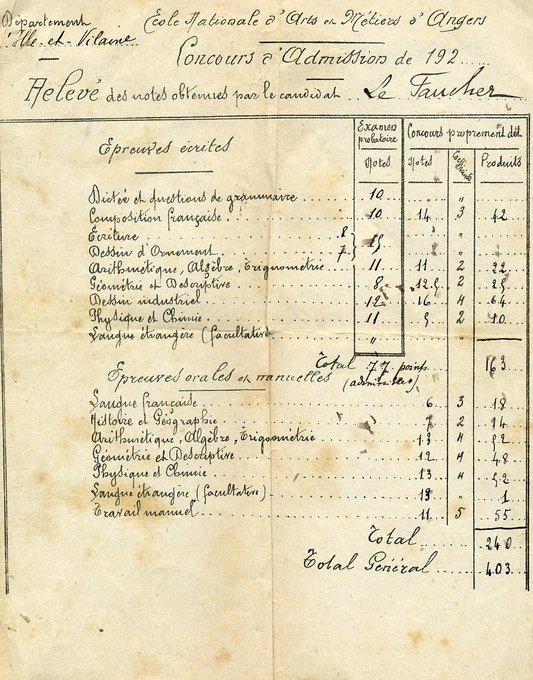 Département
d'Ille-et-Vilaine
Ecole Nationale d'Arts et Métiers d'Angers
Concours d'Admission de 192
Relevé des notes obtenues par le candidat Le Faucher
Epreuves écrites
Examen probatoire Notes
Concours proprement dit Notes Coefficients Produits
Dictée et questions de grammaire 10 "
Composition française 10 14 3 42
Ecriture 8 " "
Dessin d'Ornement 7 } 15 " "
Arithmétique, Algèbre, Trigonométrie 11 11 2 22
Géométrie et Descriptive 8 12.5 2 25
Dessin industriel 12 16 4 64
Physique et Chimie 11 5 2 10
Langue étrangère (facultative) "
Total 77 points (admissible) 163
Epreuves orales et manuelles
Langue française 6 3 18
Histoire et Géographie 7 2 14
Arithmétique, Algèbre, Trigonométrie 13 4 52
Géométrie et Descriptive 12 4 48
Physique et Chimie 13 4 52
Langue étrangère (facultative) " 1
Travail manuel 11 5 55
Total 240
Total Général 403